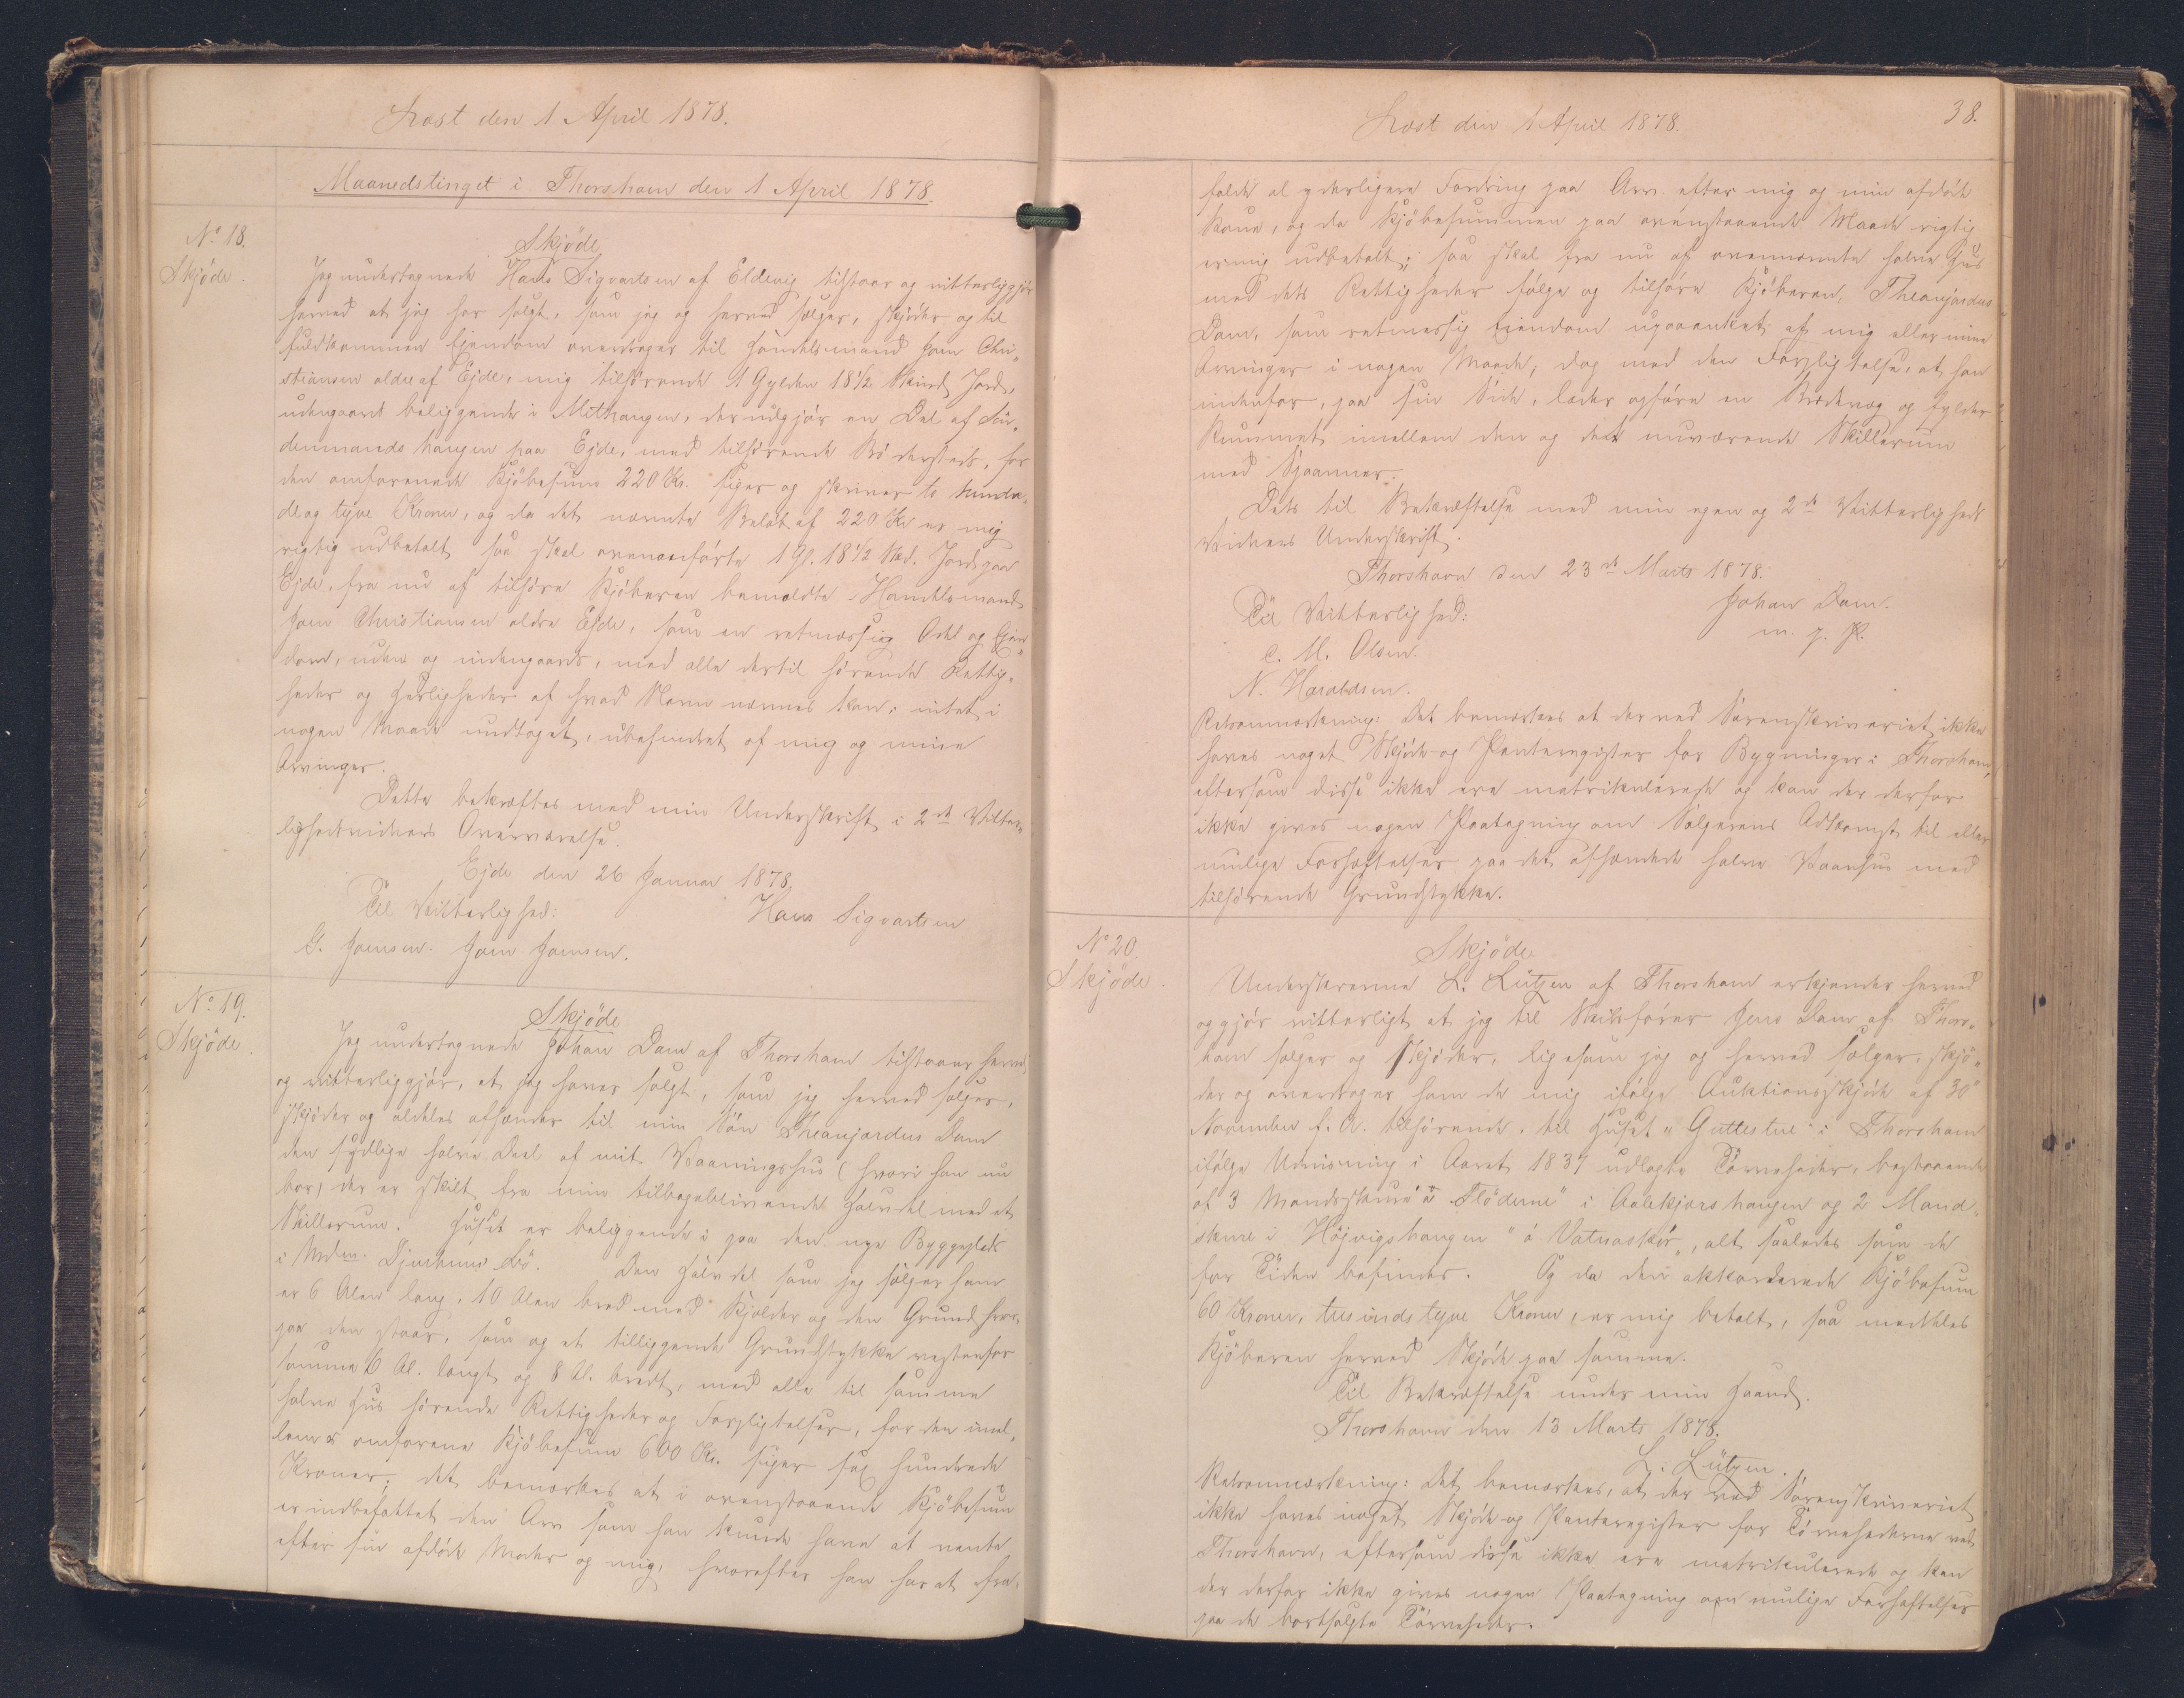 Læst den 1 April 1878.
Maanedstinget i Thorshavn den 1 April 1878.
No 18.
Skjöde.
Skjöde
Jeg undertegnede Hans Sigvartsen af Eldevig tilstaar og vitterliggjör
herved at jeg har solgt, som jeg og herved sælger, skjöder og til
fuldkommen Ejendom overdrager til Handelsmand Joen Chri„
stiansen ældre af Ejde, mig tilhörende 1 Gylden 18 1/2 Skind Jord,
udengaards beliggende i Mithaugen, der udgjör en Del af Sön„
denmandshaugen paa Ejde, med tilhörende Bödersted, for
den omforenede Kjöbesum 220 Kr. siger og skriver to hundre„
de og tyve Kroner, og da det nævnte Belöb af 220 Kr er mig
rigtig udbetalt saa skal ovenanförte 1 Gl. 18 1/2 Skd. Jord paa
Ejde, fra nu af tilhöre Kjöberen bemeldte Handelsmand
Joen Christiansen ældre Ejde, som en retmæssig Odel og Ejen„
dom, uden og indengaards, med alle dertil hörende Rettig„
heder og Herligheder af hvad Navn nævnes kan, intet i
nogen Maade undtaget, ubehindret af mig og mine
Arvinger.
Dette bekræftes med min Underskrift i 2de Vitter„
lighedsvidners Overværelse.
Ejde den 26 Januar 1878.
Til Vitterlighed:
Hans Sigvartsen
G. Joensen. Joen Joensen.
No 19.
Skjöde.
Skjöde
Jeg undertegnede Johan Dam af Thorshavn tilstaar herved
og vitterliggjör, at jeg haver solgt, som jeg herved sælger,
skjöder og aldeles afhænder til min Sön Theanjardus Dam
den sydlige halve Deel af mit Vaaningshus (hvori han nu
bor) der er skilt fra min tilbageblivende Halvdel med et
Skillerum. Huset er beliggende i paa den nye Byggeplads
i Mdm. Djurhuus' bö. Den Halvdel som jeg sælger ham
er 6 Alen lang, 10 Alen bred med Kjælder og den Grund hvor„
paa den staar, som og et tilliggende Grundstykke vestenfor
samme 6 Al. langt og 8 Al. bredt, med alle til samme
halve Hus hörende Rettigheder og Forpligtelser, for den imel„
lem os omforene Kjöbesum 600 Kr. siger sex hundrede
Kroner; det bemærkes at i ovenstaaende Kjöbesum
er indbefattet den Arv som han kunde have at vente
efter sin afdöde Moder og mig, hvorefter han har at fra„
Læst den 1 April 1878.
38.
falde al yderligere Fordring paa Arv efter mig og min afdöde
Kone, og da Kjöbesummen paa ovenstaaende Maade rigtig
er mig udbetalt; saa skal fra nu af ovennævnte halve Hus
med dets Rettigheder fölge og tilhöre Kjöberen, Theanjardus
Dam, som retmæssig Eiendom upaaanket af mig eller mine
Arvinger i nogen Maade, dog med den Forpligtelse, at han
indenfor, paa sin Side, lader opföre en Brædevæg og fylder
Rummet imellem den og det nuværende Skillerum
med Spaaner.
Dets til Bekræftelse med min egen og 2de Vitterligheds
Vidners Underskrift.
Thorshavn den 23de Marts 1878.
Til Vitterlighed:
Johan Dam.
m. p. P.
C. M. Olsen.
N. Haraldsen.
Retsanmærkning: Det bemærkes at der ved Sorenskriveriet ikke
haves noget Skjöde- og Panteregister for Bygninger i Thorshavn,
eftersom disse ikke ere matrikulerede og kan der derfor
ikke gives nogen Paategning om Sælgerens Adkomst til eller
mulige Forhæftelser paa det afhændede halve Vaanhus med
tilhörende Grundstykke.
No 20.
Skjöde.
Skjöde
Underskrevne L. Lützen af Thorshavn erkjender herved
og gjör vitterligt at jeg til Skibsförer Jens Dam af Thors„
havn sælger og skjöder, ligesom jeg og herved sælger, skjö„
der og overdrager ham de mig ifölge Auktionsskjöde af 30"
November f. A. tilhörende, til Huset „Guttestue" i Thorshavn
ifölge Udvisning i Aaret 1837 udlagte Törveheder, bestaaende
af 3 Mandsskure „á Flöderne" i Aalekjærshaugen og 2 Mand„
skure i Höjvigshaugen „á Vatnasker", alt saaledes som de
for Tiden befindes. Og da den akkorderede Kjöbesum
60 Kroner, tresindstyve Kroner, er mig betalt, saa meddeles
Kjöberen herved Skjöde paa samme.
Til Bekræftelse under min Haand.
Thorshavn den 13 Marts 1878.
L. Lützen.
Retsanmærkning: Det bemærkes, at der ved Sorenskriveriet
ikke haves noget Skjöde og Panteregister for Törvehederne ved
Thorshavn, eftersom disse ikke ere matrikulerede og kan
der derfor ikke gives nogen Paategning om mulige Forhæftelser
paa de bortsolgte Törveheder.